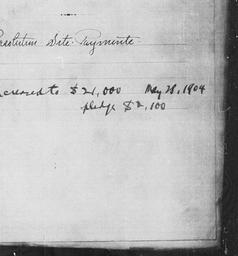 Resolution Site Payments
ncreased to $21,000 May 28, 1904
pledge $2,100